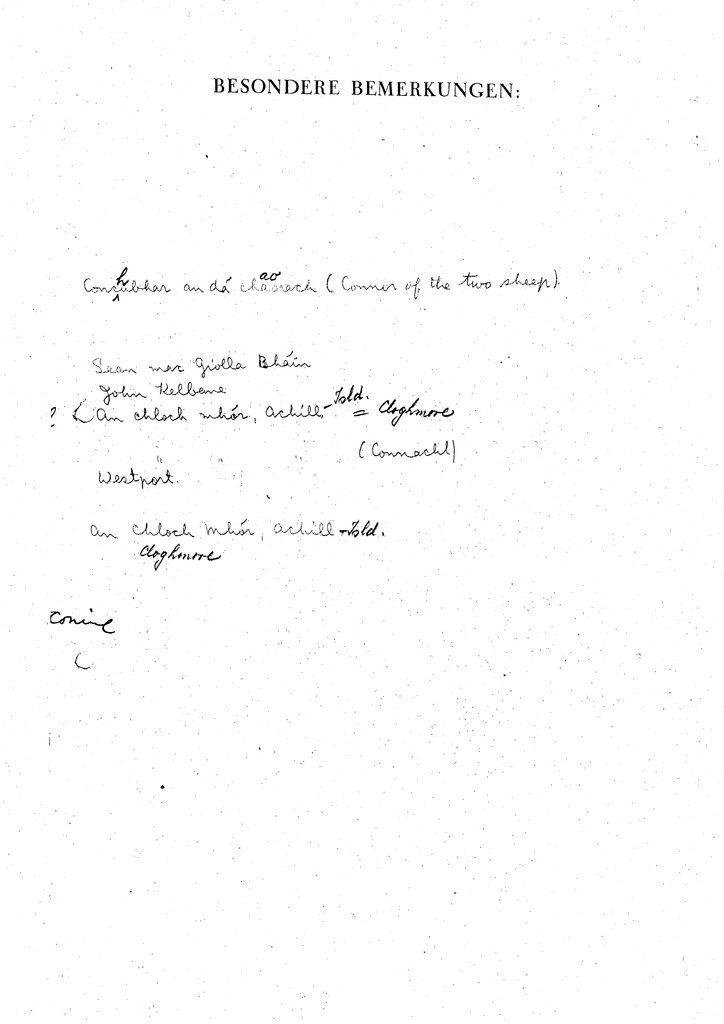 BESONDERE BEMERKUNGEN:
Conchubhar an dá chaorach (Connor of the two sheep).
Sean mac Giolla Bháin
John Kelbane
? An chloch mhór, Achill-Isld. = Cloghmore
(Connacht)
Westport.
An chloch Mhór, Achill-Isld.
Cloghmore